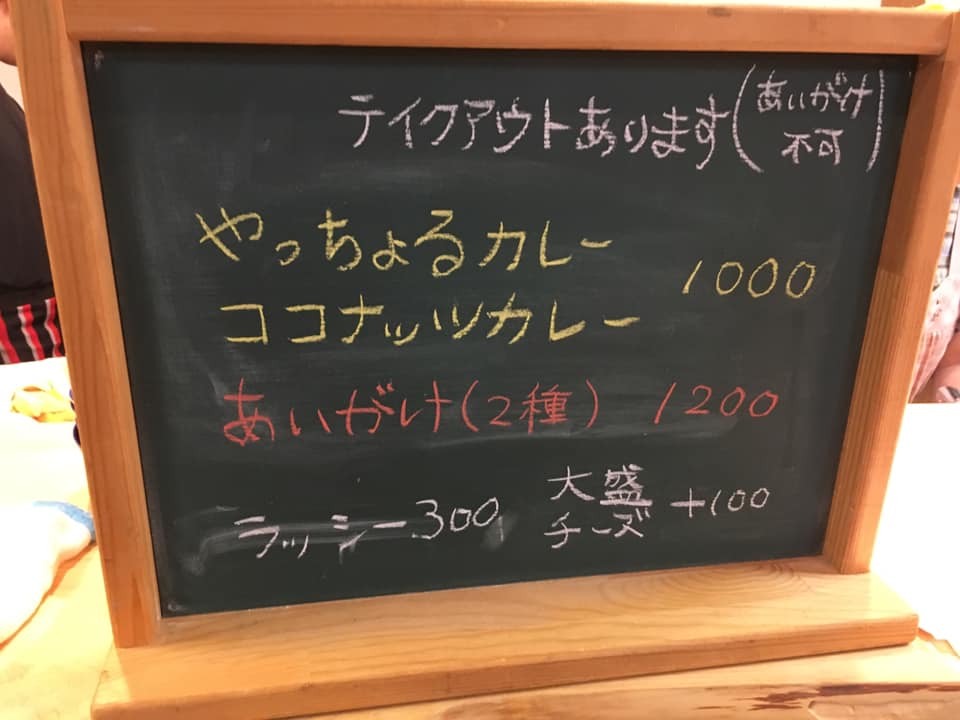 テイクアウトあります(あいがけ不可)
やっちょるカレー
ココナッツカレー 1000
あいがけ(2種) 1200
ラッシー300
大盛
チーズ +100